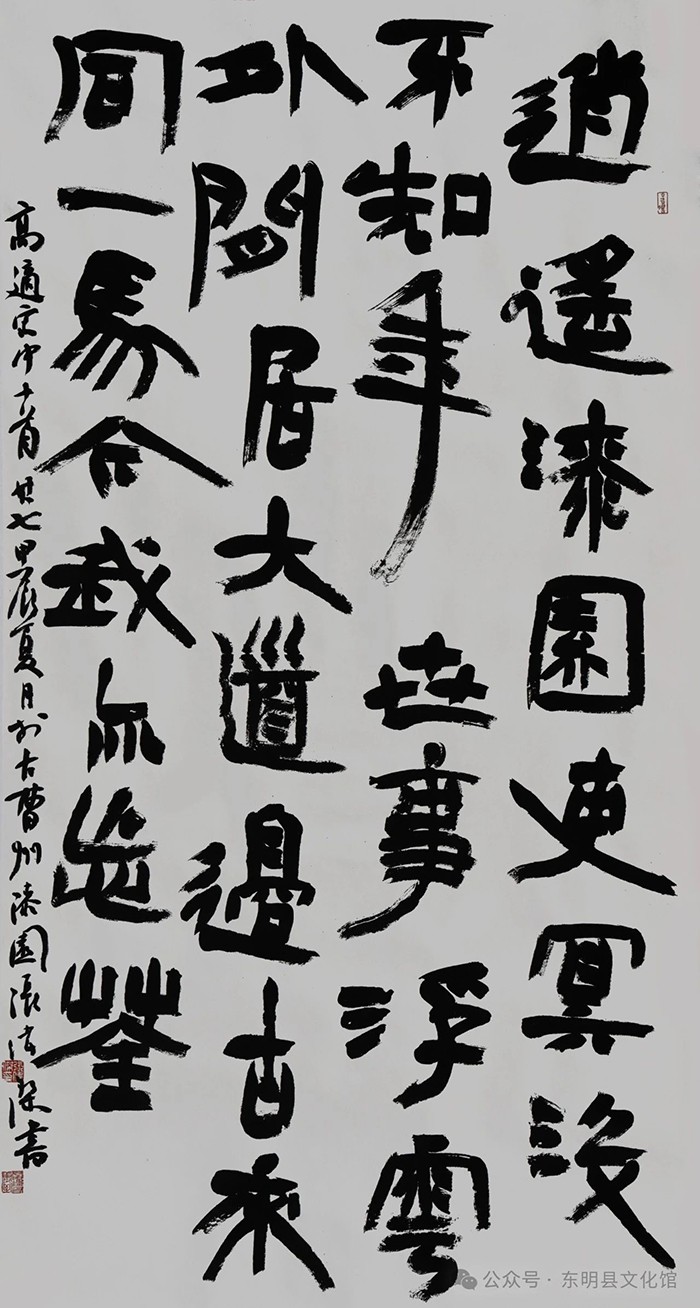 逍遙漆園吏冥沒
不知年世事浮雲
外閒居大道邊古來
同一馬今我亦忘筌
高適宋中十首其七甲辰夏月於古曹州漆園張書
公众号·东明县文化馆